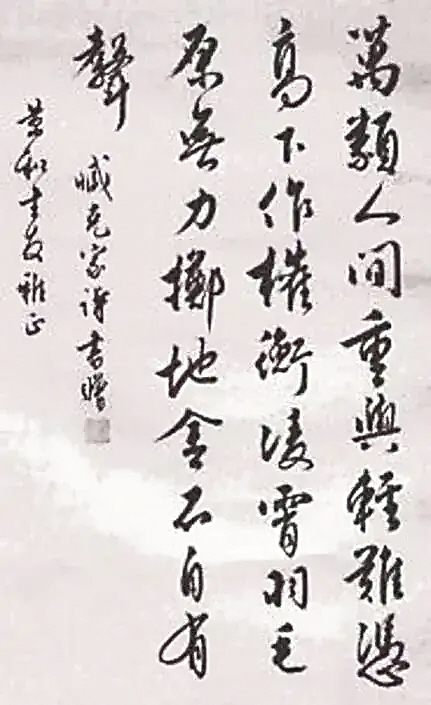 萬類人间重與輕難憑
高下作權衡凌霄羽毛
原無力擲地金石自有
聲
臧克家诗書贈
黄和書友雅正